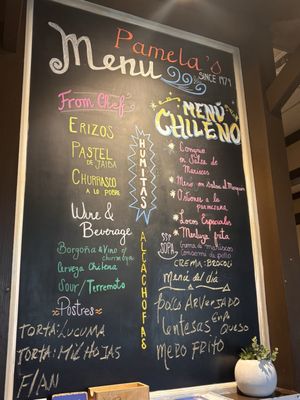 Pamela's
Menu
SINCE 1974
From Chef
ERIZOS
PASTEL
DE JAIBA
CHURRASCO
A LO POBRE
Wine &
Beverage
Borgoña / Vino
Cerveza Chilena
Sour / Terremoto
Postres
TORTA: LUCUMA
TORTA: MIL HOJAS
Flan
HUMITAS
ALCACHOFAS
MENÚ
CHILENO
Congrio
en Salsa de
Mariscos
Ostiones a la
parmesana
Locos Especiales
Merluza frita
SOPA
CREMA: BROCOLI
Menú del día
Pollo Arverjado
Lentesas Queso
Mero FRITO